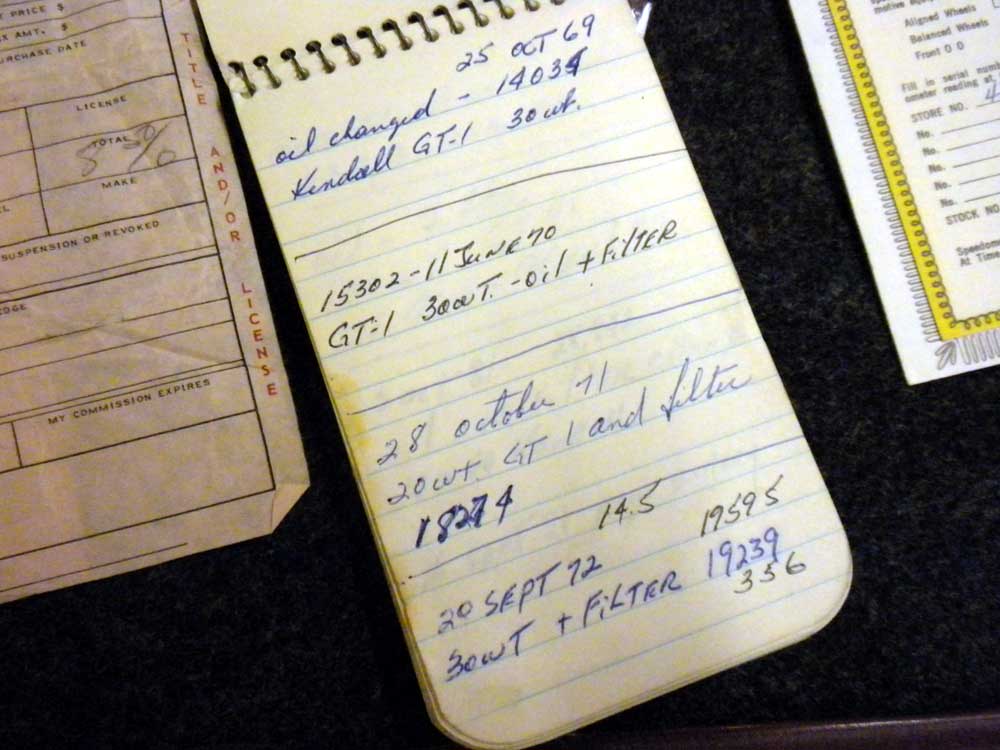 PRICE $
AMT. $
PURCHASE DATE
LICENSE
TOTAL
MAKE
SUSPENSION OR REVOKED
MY COMMISSION EXPIRES
TITLE AND/OR LICENSE
25 OCT 69
oil changed - 14034
Kendall GT-1 30 wt.
15302-11 JUNE 70
GT-1 30WT. -oil + FiLTER
28 october 71
20wt. GT 1 and filter
18274
14.5 19595
20 SEPT 72 19239
30WT + FiLTER 356
Aligned Wheels
Balanced Wheels
Front
Fill in serial
ometer reading at
STORE NO. 4
No.
No.
No.
No.
STOCK NO
Speedom
At Time